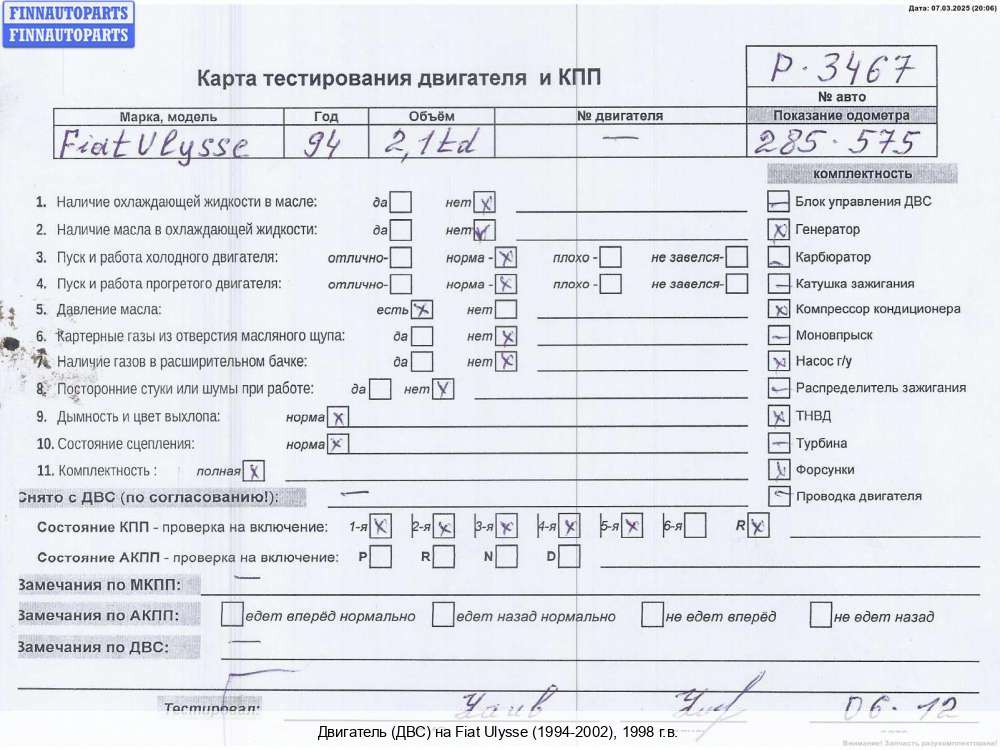 FINNAUTOPARTS
FINNAUTOPARTS
Дата: 07.03.2025 (20:06)
Карта тестирования двигателя и КПП
P·3467
№ авто
Марка, модель Год Объём № двигателя Показание одометра
Fiat Ulysse 94 2,1td — 285·575
комплектность
1. Наличие охлаждающей жидкости в масле: да нет x Блок управления ДВС
2. Наличие масла в охлаждающей жидкости: да нет Генератор
3. Пуск и работа холодного двигателя: отлично- норма - x плохо - не завелся- Карбюратор
4. Пуск и работа прогретого двигателя: отлично- норма - x плохо - не завелся- Катушка зажигания
5. Давление масла: есть x нет Компрессор кондиционера
6. Картерные газы из отверстия масляного щупа: да нет x Моновпрыск
7. Наличие газов в расширительном бачке: да нет x Насос г/у
8. Посторонние стуки или шумы при работе: да нет x Распределитель зажигания
9. Дымность и цвет выхлопа: норма x ТНВД
10. Состояние сцепления: норма x Турбина
11. Комплектность : полная x Форсунки
Снято с ДВС (по согласованию!): — Проводка двигателя
Состояние КПП - проверка на включение: 1-я x 2-я x 3-я x 4-я x 5-я x 6-я R x
Состояние АКПП - проверка на включение: P R N D
Замечания по МКПП: —
Замечания по АКПП: едет вперёд нормально едет назад нормально не едет вперёд не едет назад
Замечания по ДВС: —
Тестировал: 06.12
Двигатель (ДВС) на Fiat Ulysse (1994-2002), 1998 г.в.
Внимание! Запчасть разукомплектована!